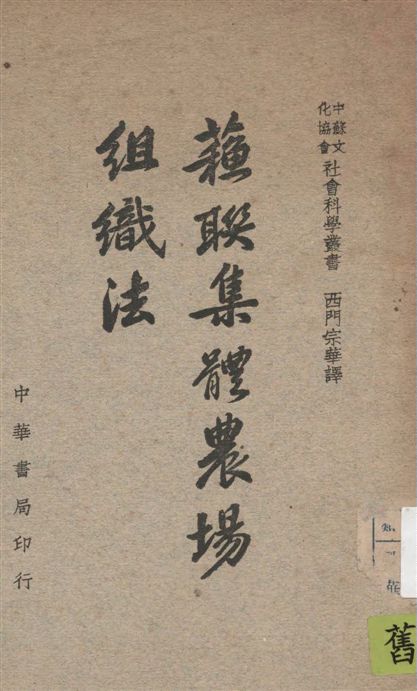 中蘇文
化協會
社會科學叢書 西門宗華譯
蘓聯集體農場
組織法
中華書局印行
舊